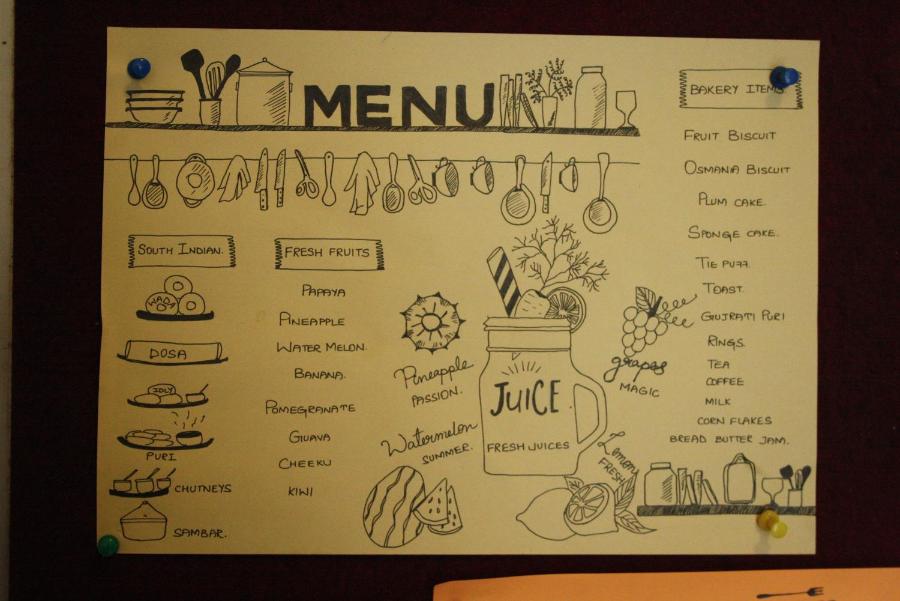 MENU
SOUTH INDIAN.
WADA
DOSA
IDLY
PURI
CHUTNEYS
SAMBAR.
FRESH FRUITS
PAPAYA
PINEAPPLE
WATER MELON.
BANANA.
POMEGRANATE
GUAVA
CHEEKU
KIWI
Pineapple
PASSION.
Watermelon
SUMMER.
JUICE
FRESH JUICES
grapes
MAGIC
Lemon
FRESH
BAKERY ITEMS
FRUIT BISCUIT
OSMANIA BISCUIT
PLUM CAKE.
SPONGE CAKE.
TIE PUFF.
TOAST.
GUJRATI PURI
RINGS.
TEA
COFFEE
MILK
CORN FLAKES
BREAD BUTTER JAM.